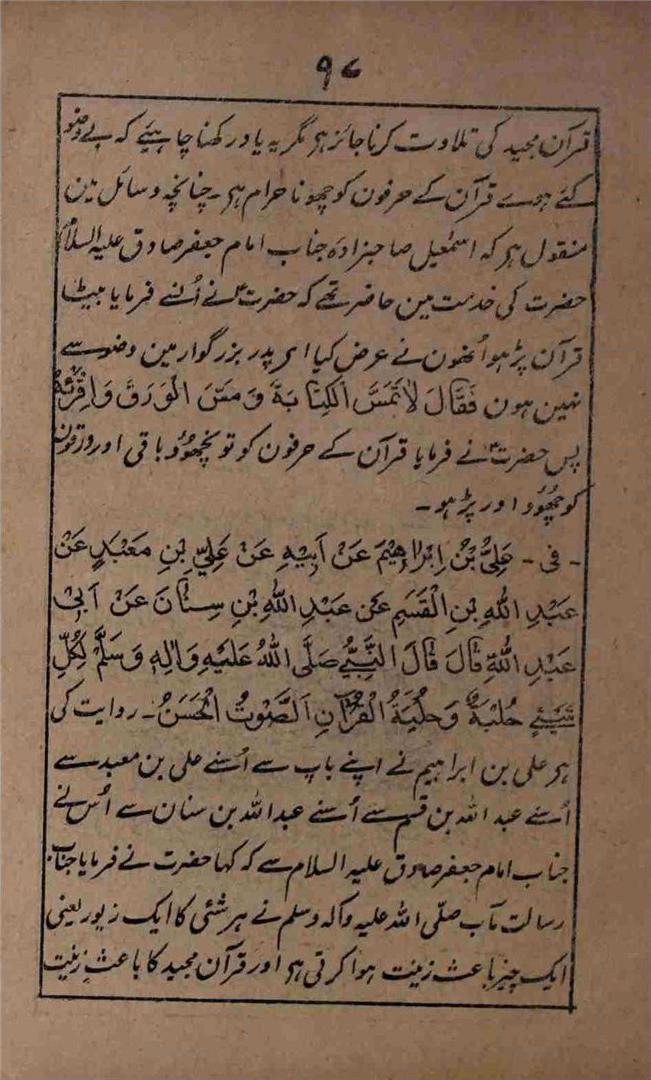 ۹۷
قرآن مجید کی تلاوت کرنا جائز ہر مگر یہ یاد رکھنا چاہیئے کہ بے وضو
کئے ہوے قرآن کے حرفون کو چھونا حرام ہر۔ چنانچہ وسائل مین
منقول ہر کہ اسمٰعیل صاحبزادہ جناب امام جعفر صادق علیہ السلام
حضرت کی خدمت مین حاضر تھے کہ حضرت ؑ نے اُنسے فرمایا بیٹا
قرآن پڑہو اُنھون نے عرض کیا اہر پدر بزرگوار مین وضو سے
نہین ہون فَقَالَ لَا تَمَسَّ الْکِتَابَةَ وَمَسَّ الْوَرَقَ وَاقْرَئْهُ
پس حضرت ؑ نے فرمایا قرآن کے حرفون کو تو نچھوؤ باقی اور ورقون
کو چھوؤ اور پڑہو۔
۔ فی ۔ عَلِیُّ بْنُ اِبْرَاهِیْمَ عَنْ اَبِیْهِ عَنْ عَلِیِّ بْنِ مَعْبَدٍ عَنْ
عَبْدِ اللهِ بْنِ الْقٰسِمِ عَن عَبْدِ اللهِ بْنِ سِنَانَ عَنْ اَبِیْ
عَبْدِ اللهِ قَالَ قَالَ النَّبِیُّ صَلَّی اللهُ عَلَیْهِ وَاٰلِهٖ وَسَلَّمَ لِکُلِّ
شَیْئٍ حُلْیَةٌ وَحُلْیَةُ الْقُرْاٰنِ اَلصَّوْتُ الْحَسَنُ۔ روایت کی
ہر علی بن ابراہیم نے اپنے باپ سے اُسنے علی بن معبد سے
اُسنے عبد اللہ بن قسم سے اُسنے عبد اللہ بن سنان سے اُس نے
جناب امام جعفر صادق علیہ السلام سے کہ کہا حضرت نے فرمایا جناب
رسالت مآب صلّی اللہ علیہ وآلہ وسلم نے ہر شئی کا ایک زیور یعنی
ایک چیز باعث زینت ہوا کرتی ہر اور قرآن مجید کا باعث زینت